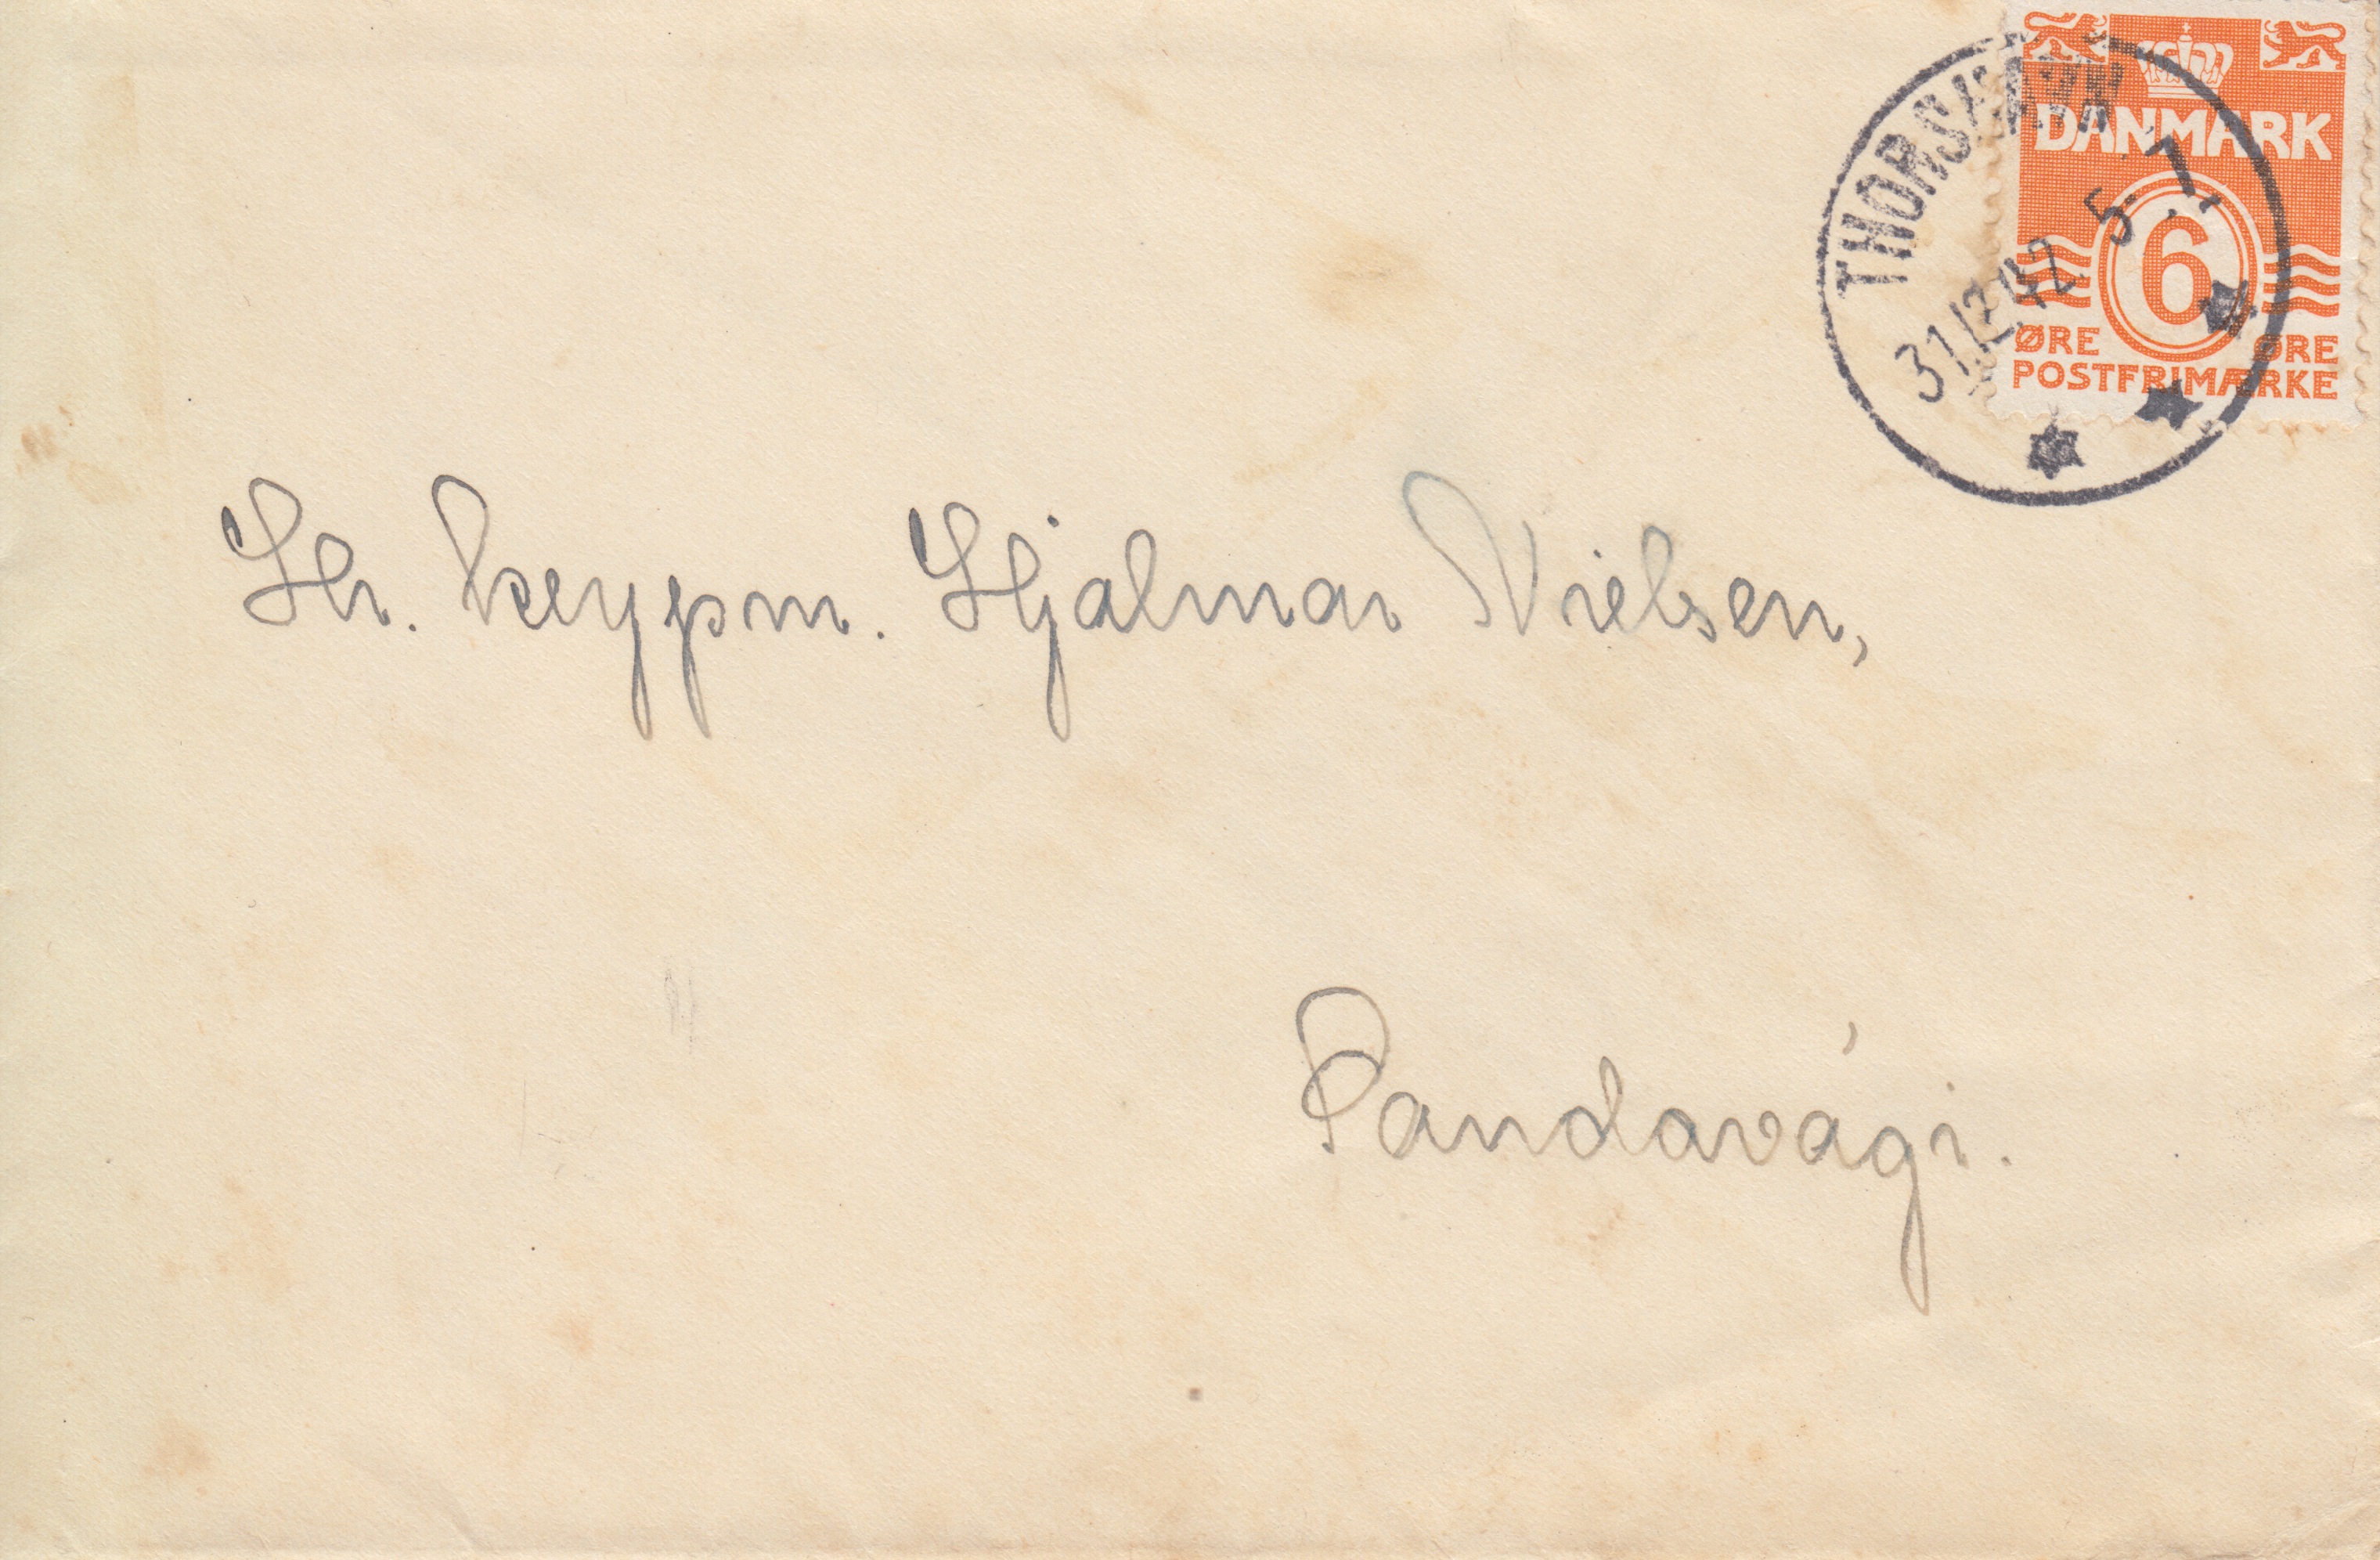 THORSHAVN
31.12.42 5-7
DANMARK
6
ØRE ØRE
POSTFRIMÆRKE
Hr. keypm. Hjalmar Nielsen,
Sandavági.